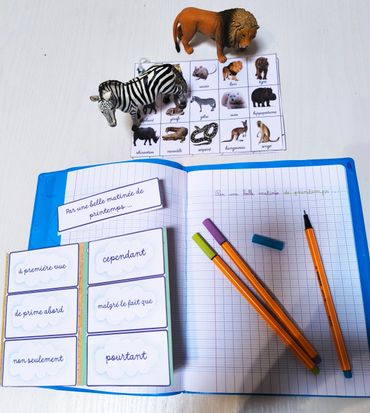 lion tigre
girafe zèbre hippopotame
rhinocéros crocodile serpent kangourou singe
Par une belle matinée de
printemps ...
Par une belle matinée de printemps
à première vue
cependant
de prime abord
malgré le fait que
non seulement
pourtant